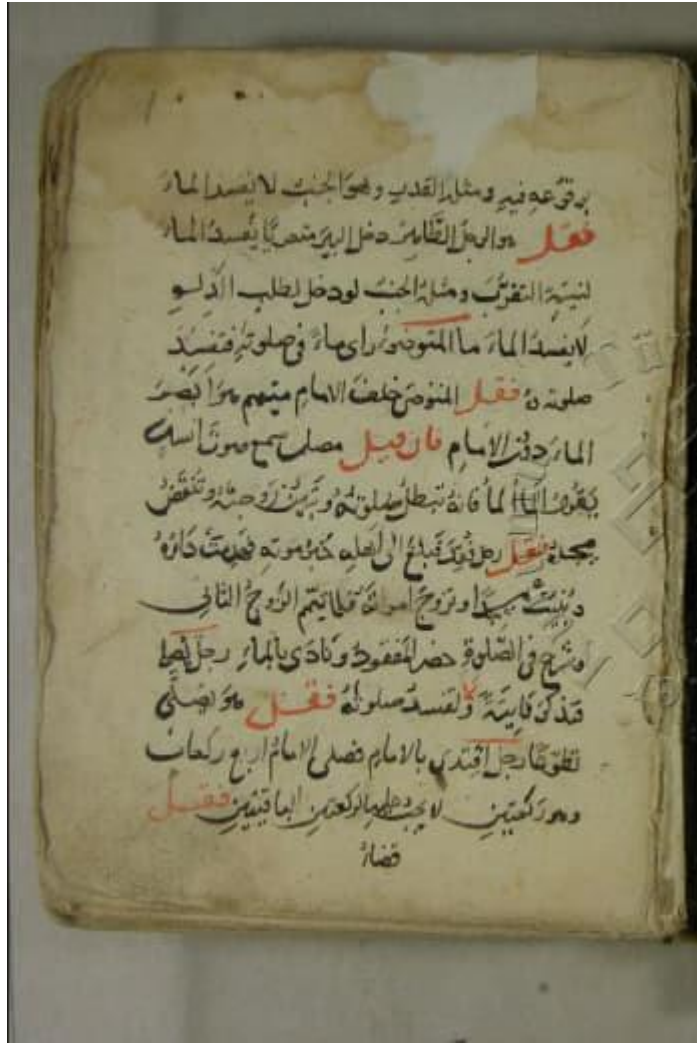 بوقوعه فيه ومثله القدي وهو الجنب لا يفسد الماء
فقل هو الرجل الطاهر دخل البير متعريا يفسد الماء
لنية التقرب ومثله الجنب لو دخل لطلب الدلو
لا يفسد الماء ما المتوضؤ راى ماء فى صلوته فتفسد
صلوته فقل المتوضى خلف الامام متيمم هو ابصر
الماء دون الامام فان قيل مصلى سمع صوت انسان
يقول الماء الماء فانه تبطل صلوته وتبين زوجته وتنقض
مسجده فقل رجل فقد فبلغ الى اهله خبر موته فهدمت داره
وبنيت مسجدا وتزوج امراته فلما تيمم الزوج الثانى
وشرع فى الصلوة حضر المفقود ونادى بالماء رجل يصلى
فتذكر فايتة ولا تفسد صلوته فقل هو يصلى
تطوعا رجل اقتدى بالامام فصلى الامام اربع ركعات
وهو ركعتين لا يجب عليه الركعتين الباقيتين فقل
قضاء